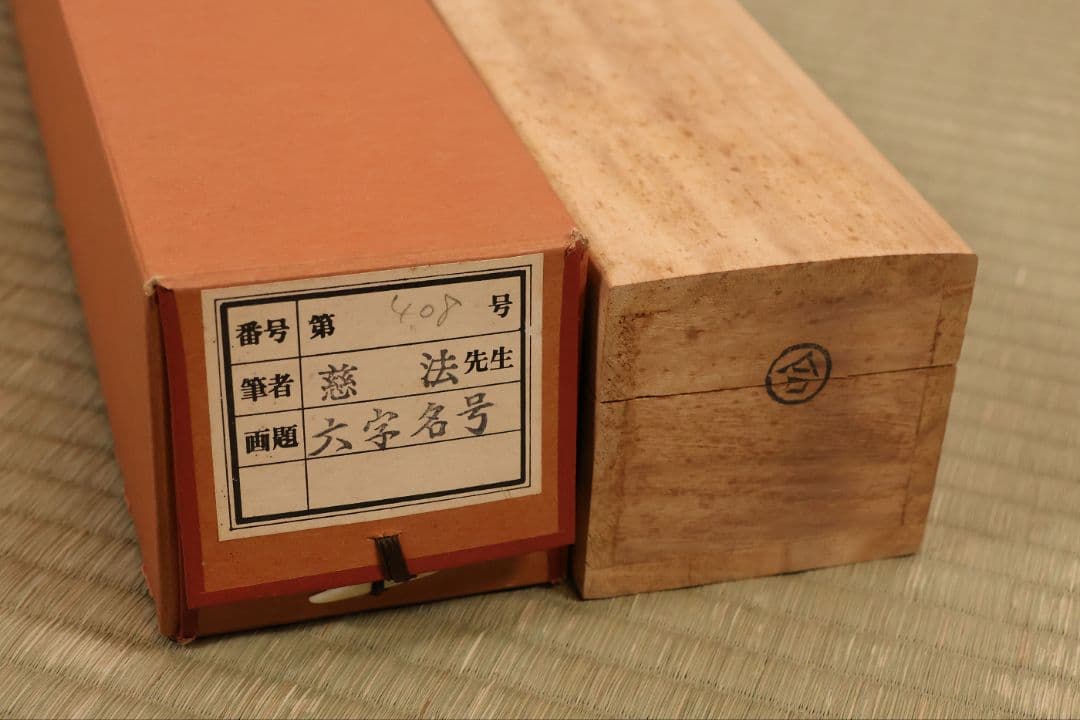 番号 第 408 号
筆者 慈法先生
画題 六字名号